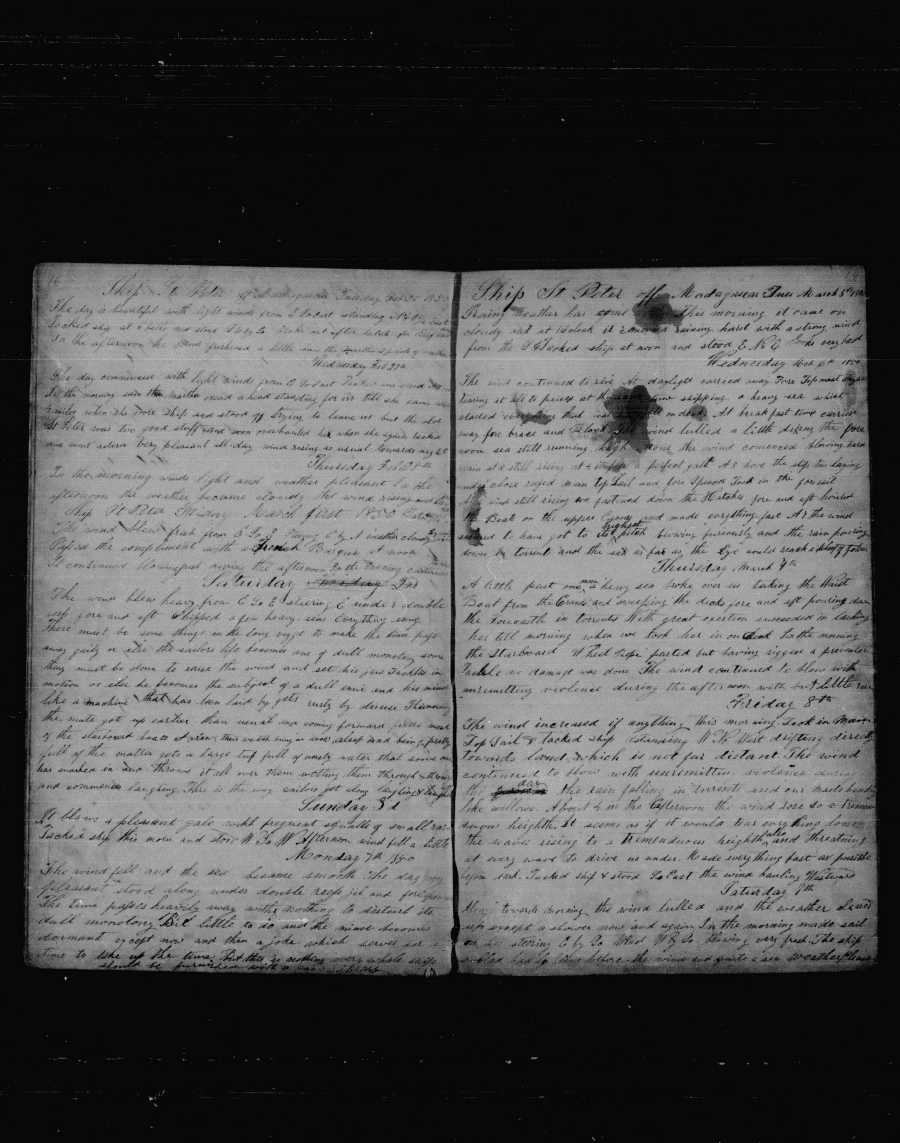 Ship St Peter off Madagascar Tuesday Feb 26 1850
The day is beautiful with light winds from E So East standing N E
tacked ship at 6 bells and stood S by So
In the afternoon the wind freshened a little saw the Martha
Wednesday Feb 27th
The day commenced with light winds from E So East Tacked
In the morning saw the Martha dead ahead standing for us till she came
2 miles when she wore ship and stood off trying to leave us but the old
St Peter was two good stuff and soon overhauled her when she again tacked
and went astern Very pleasant all day wind rising as usual towards night
Thursday Feb 28th
In the morning winds light and weather pleasant In the
afternoon the weather became cloudy the wind rising and
Ship St Peter Friday March first 1850
The wind blew fresh from E So E Steering E by N weather cloudy
Passed the compliment with a French Barque at noon
It continued blowing fresh during the afternoon In the evening
Saturday 2nd
The wind blew heavy from E So E steering E under double
reefs fore and aft Shipped a few heavy seas Everything snug
There must be some things in the long voyge to make the time pass
away gaily or else the sailors life becomes one of dull monotony some
thing must be done to raise the wind and set his jaw Tackles in
motion or else he becomes the subject of a dull and his mind
like a machine that has been laid by gets rusty by disuse This morning
the mate got up earlier than usual and coming forward finds most
of the starboard boats crew there watch asleep and being pretty
full of the matter gets a large tub full of nasty water that some one
has washed in and throws it all over them wetting them through
and commences laughing This is the way sailors get along laughing
Sunday 3d
It blows a pleasant gale with frequent squalls of small rain
Tacked ship this morn and stood W So W Afternoon wind fell a little
Monday 4th 1850
The wind fell and the sea became smooth The day
pleasant stood along under double reefs jib and
The time passes heavily away with nothing to disturb its
dull monotony But little to do and the mind becomes
dormant except now and then a joke which serves for
time to take up the time But this is nothing every whale ship
should be furnished with a
Ship St Peter off Madagascar Tues March 5th 1850
Rainy weather has come this morning it came on
cloudy and at 10 oclock it commenced raining hard with a strong wind
from the Tacked ship at noon and stood E. N. E looks very bad
Wednesday Mch 6th 1850
The wind continued to rise At daylight carried away Fore Topmast
tearing it all to pieces at the same time shipping a heavy sea which
started everything that was on deck. At breakfast time carried
away fore brace and block The wind lulled a little during the fore
noon sea still running high noon the wind comenced blowing hard
again at 2 still rising at 4 it blew a perfect gale At 6 hove the ship too laying
under close reefed main top Sail and fore Spencer Took in the foresail
At 7 wind still rising we fastened down the Hatches fore and aft hoisted
the Boats on the upper Cranes and made everything fast At 8 the wind
seemed to have got to its highest pitch blowing furiously and the rain pouring
down by torrents and the sea as far as the Eye could reach a sheet of foam
Thursday March 7th
A little past one a heavy sea broke over us taking the Waist
Boat from the Cranes and sweeping the decks fore and aft pouring down
the Forecastle in torrents With great exertion succeeded in lashing
her till morning when we took her in on deck In the morning
the Starboard Wheel rope parted but having rigged a preventer
Tackle no damage was done The wind continued to blow with
unremitting violence during the afternoon with but little rain
Friday 8th
The wind increased if anything this morning. Took in Main
Top Sail & tacked ship standing W So West drifting directly
towards land which is not far distant The wind
continued to blow with unremitting violence during
the day The rain falling in torrents and our masts bending
like willows. About 4 in the afternoon the wind rose to a tremen
duous heighth. It seems as if it would tear everything loose
the waves rising to a tremenduous heighth also and threatning
at every wave to drive us under. Made everything fast as possible
before dark. Tacked ship & stood So East the wind hauling Westward
Saturday 9th
Along towards morning the wind lulled and the weather cleared
up except a shower now and again In the morning made sail
steering E by So Wind W by So blowing very fresh. The ship
before the wind and quite a sea Weather